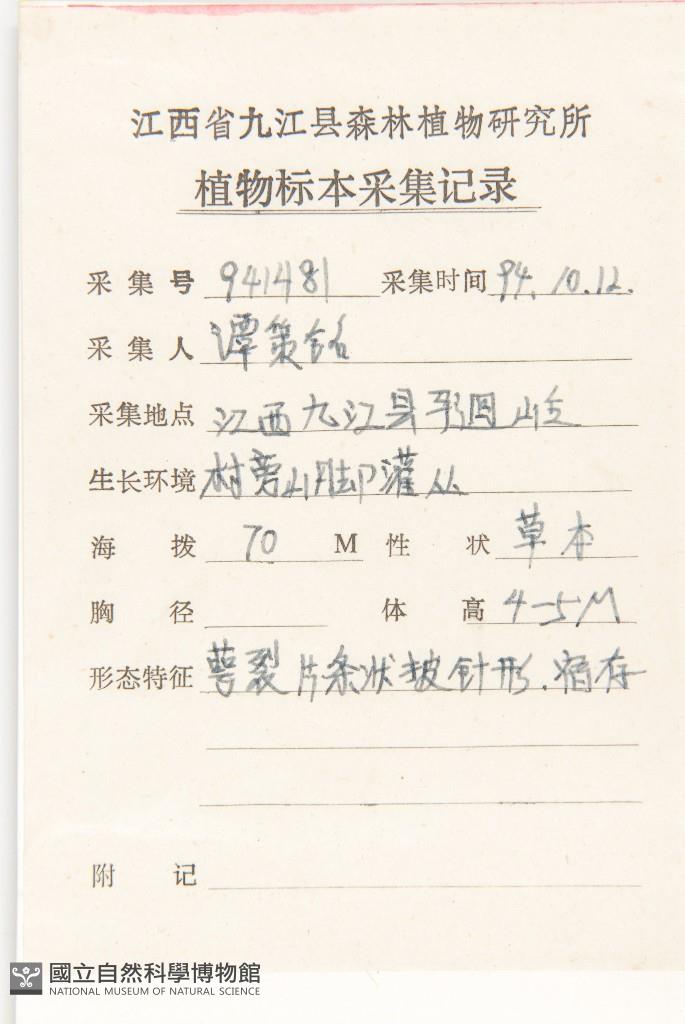 江西省九江县森林植物研究所
植物标本采集记录
采集号 941481 采集时间 94.10.12.
采集人 谭策铭
采集地点 江西九江县
生长环境 村旁山脚灌丛
海拨 70 M 性状 草本
胸径 体高 4-5M
形态特征 萼裂片条状披针形.宿存
附记
國立自然科學博物館
NATIONAL MUSEUM OF NATURAL SCIENCE